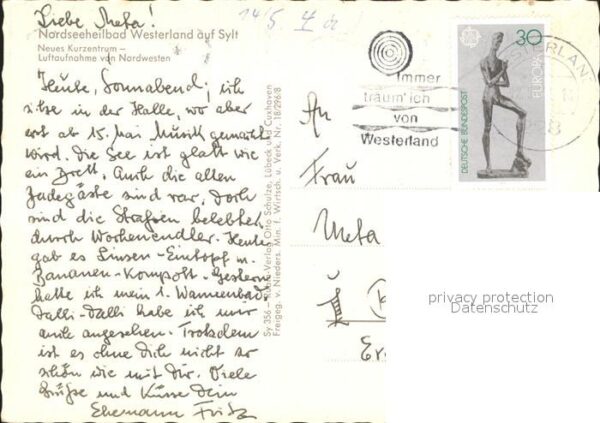 Liebe Meta!
14/5.
Nordseeheilbad Westerland auf Sylt
Neues Kurzentrum –
Luftaufnahme von Nordwesten
Heute, Sonnabend, ich
sitze in der Halle, wo aber
erst ab 15. Mai Musik gemacht
wird. Die See ist glatt wie
ein Brett. Auch die alten
Badegäste sind rar, doch
sind die Straßen belebter
durch Wochenendler. Heute
gab es Linsen-Eintopf m.
Bananen-Kompott. Gestern
hatte ich mein 1. Wannenbad
Dalli-Dalli habe ich mir
auch angesehen. Trotzdem
ist es ohne Dich nicht so
schön wie mit Dir. Viele
Grüße und Küsse Dein
Ehemann Fritz
Sy 356 Verlag Otto Schulze, Lübeck und Cuxhaven
Freigeg. v. Nieders. Min. f. Wirtsch. u. Verk. Nr. 18/296/8
Immer
träum' ich
von
Westerland
30
EUROPA
DEUTSCHE BUNDESPOST
An
Frau
Meta
privacy protection
Datenschutz